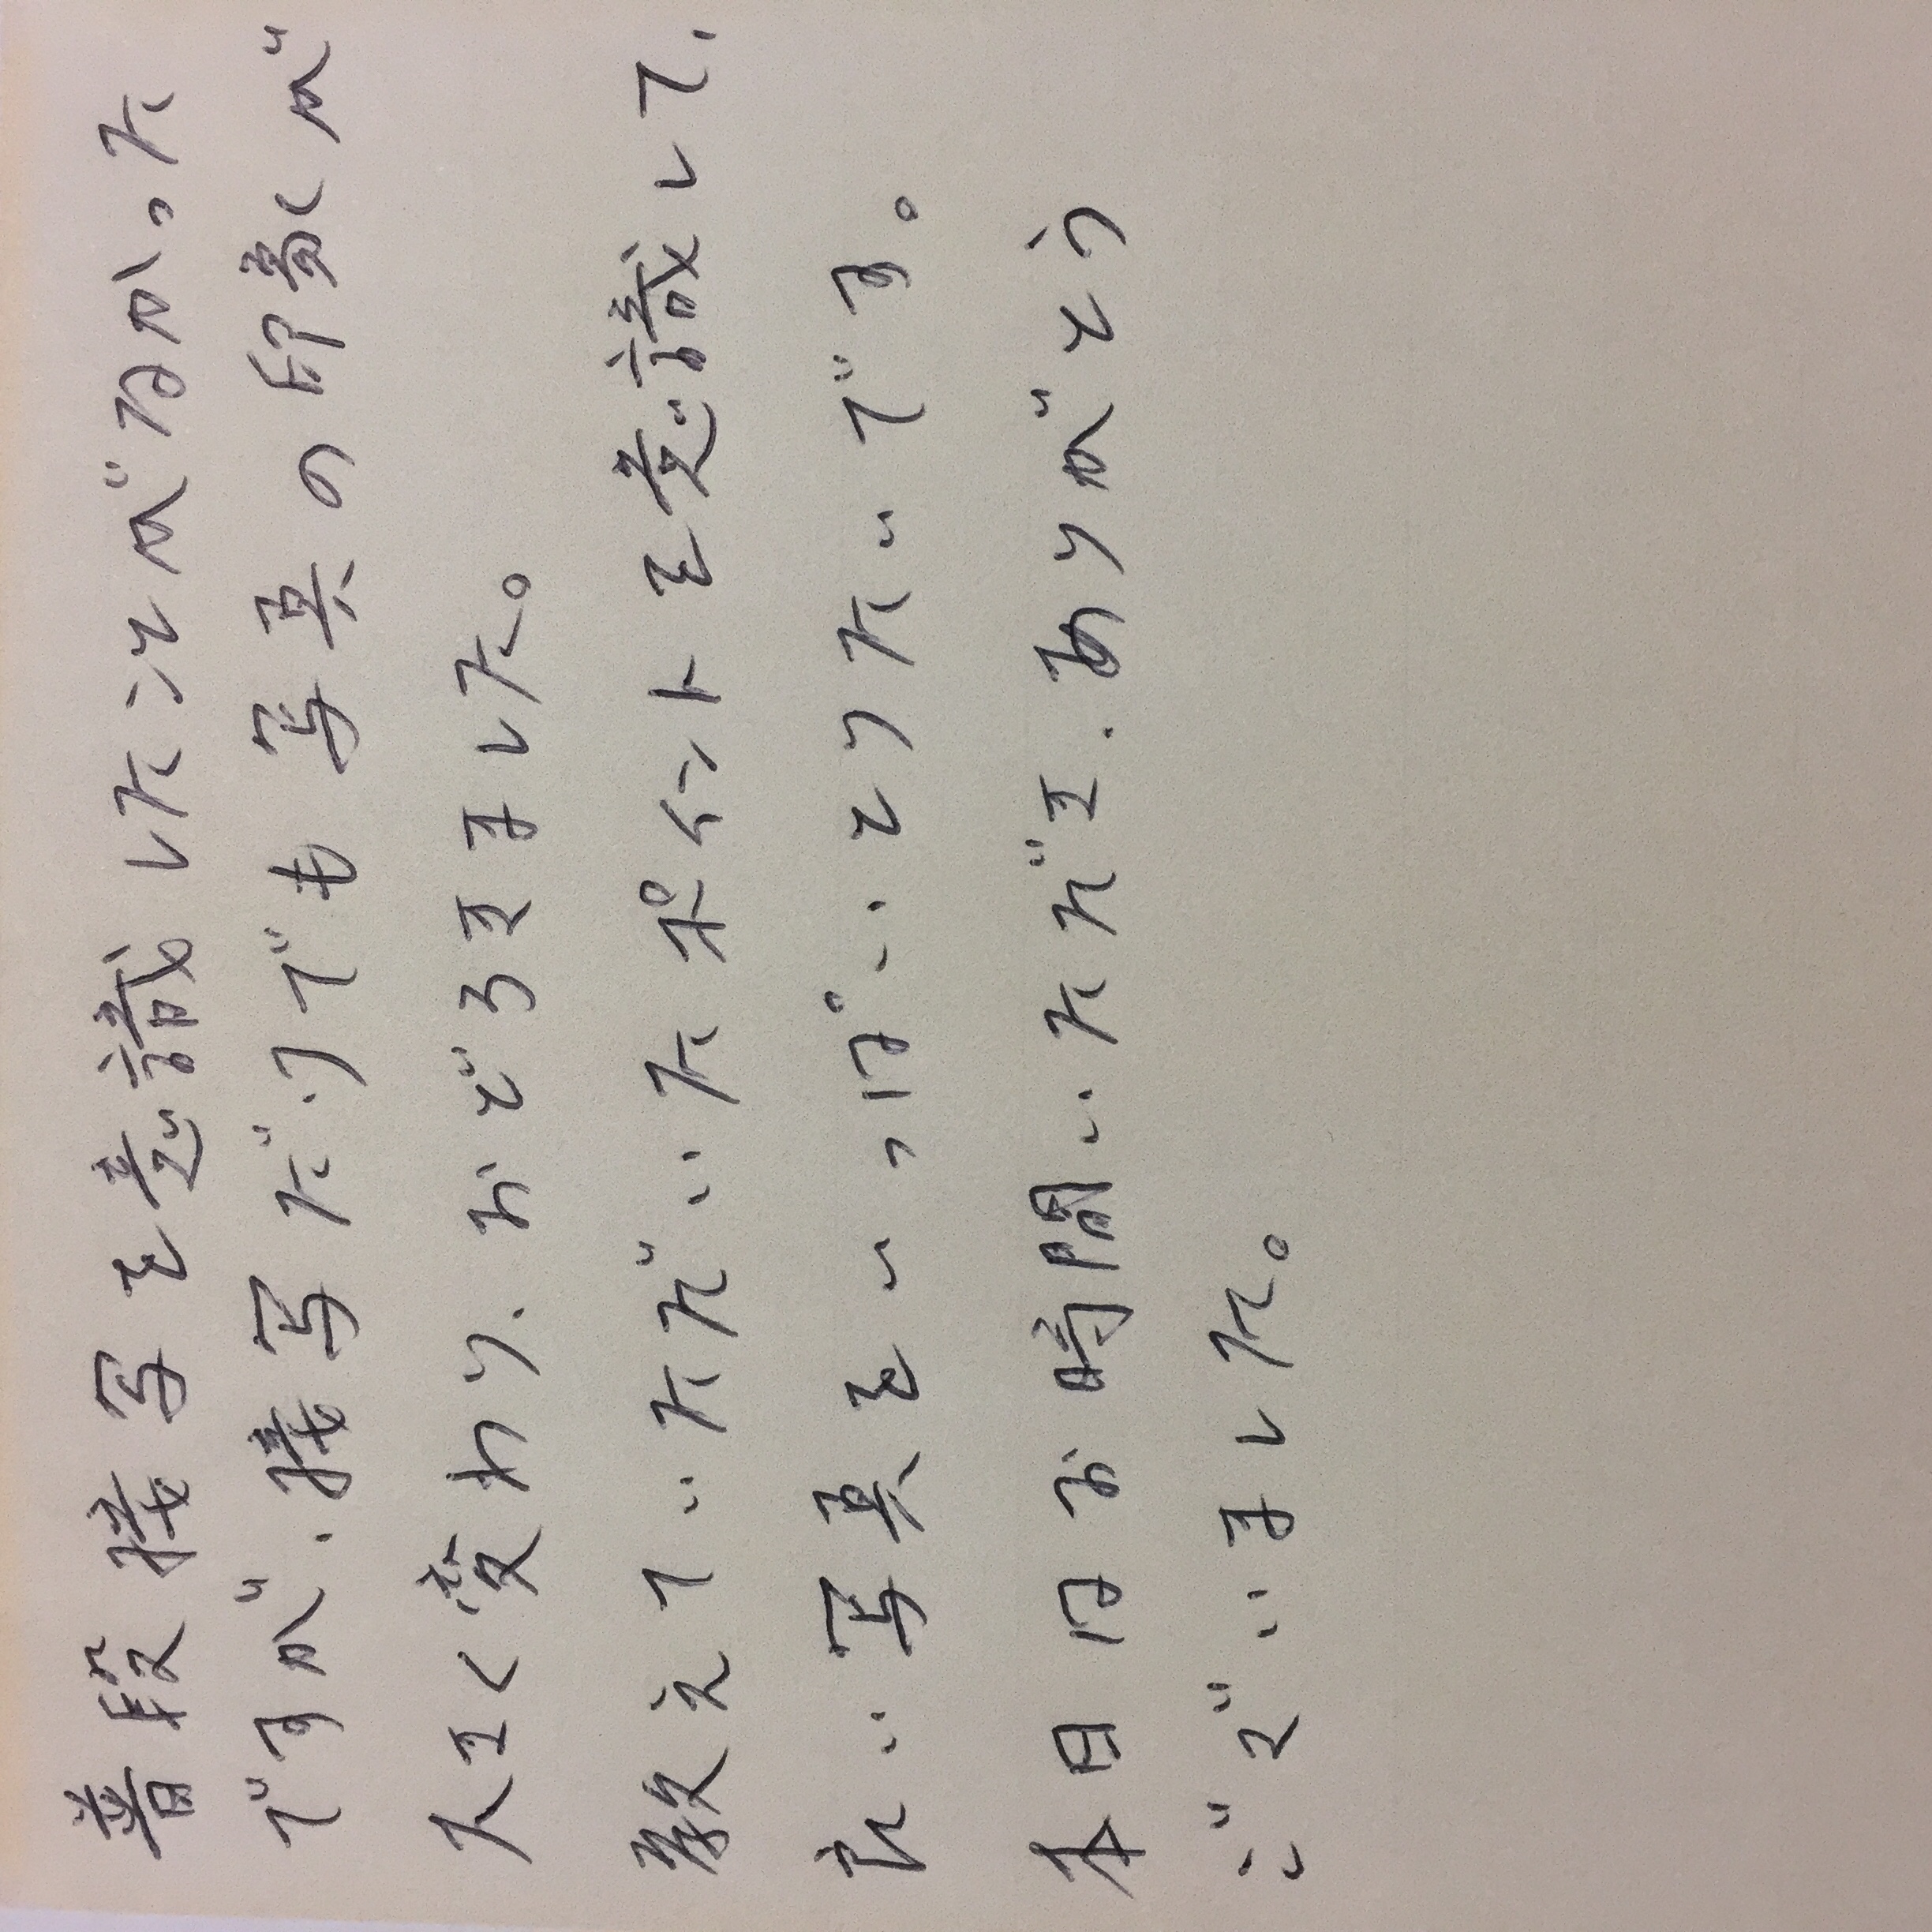 普段接写を意識したことがなかった
ですが、接写だけでも写真の印象が
大きく変わり、おどろきました。
教えていただいたポイントを意識して、
良い写真をいっぱいとりたいです。
本日はお時間いただき、ありがとう
ございました。